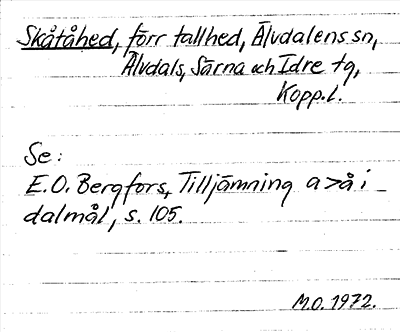 Skåtåhed, förr tallhed, Älvdalens sn,
Älvdals, Särna och Idre tg,
Kopp.l.
Se:
E.O. Bergfors, Tilljämning a>å i
dalmål, s. 105.
M.O. 1972.